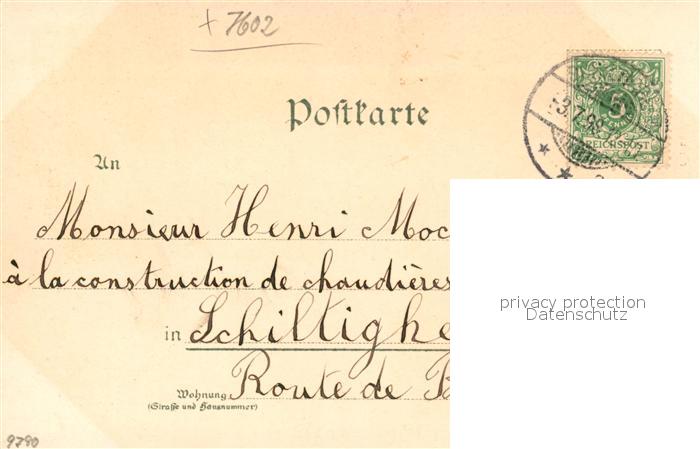 + 7602
Postkarte
5
REICHSPOST
An
Monsieur Henri Moc
à la construction de chaudières
in Schiltighe
Route de B
Wohnung
(Straße und Hausnummer)
privacy protection
Datenschutz
9780